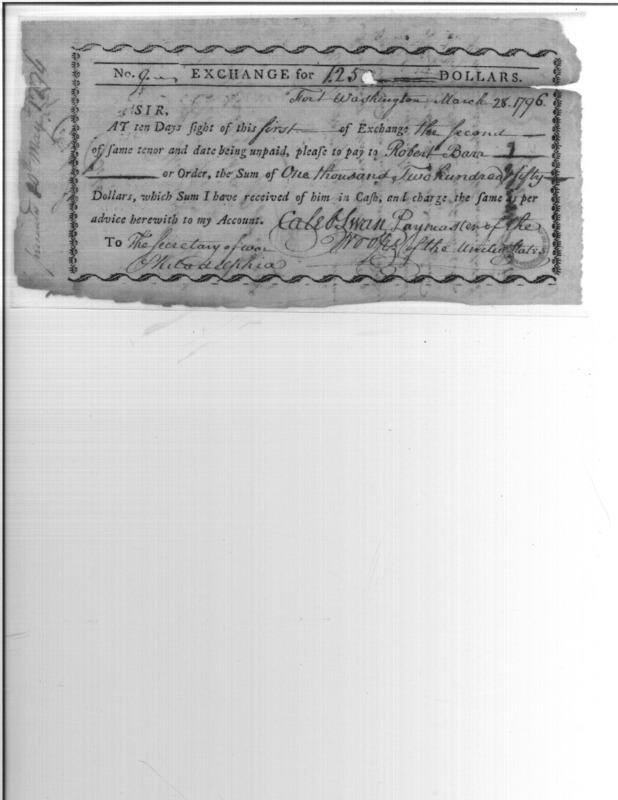 No. EXCHANGE for 125 DOLLARS.
Fort Washington March 28. 1796.
SIR,
AT ten Days sight of this first of Exchange the second
of same tenor and date being unpaid, please to pay to Robert Barr
or Order, the Sum of One thousand, Two hundred & fifty
Dollars, which Sum I have received of him in Cash, and charge the same as per
advice herewith to my Account. Caleb Swan Paymaster of the
To The Secretary of war Troops of the United States
Philadelphia
May 1796